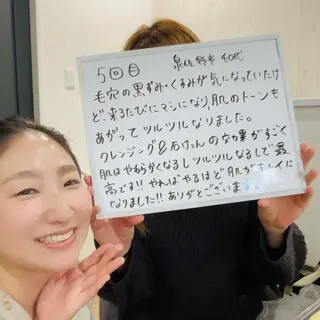 5回目 泉佐野市 40代
毛穴の黒ずみ・くすみが気になっていたけ
ど、来るたびにマシになり、肌のトーンも
あがってツルツルなりました。
クレンジング&石けんの効果がすごく
肌はやわらかくなるしツルツルなるしで最
高です!! やればやるほど肌がキレイに
なりました!! ありがとうございま